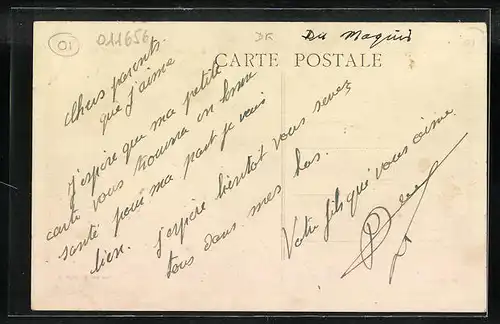 01
011656
DK
Du Maquis
01
CARTE POSTALE
Chers parents
que j'aime
J'espère que ma petite
carte vous trouvera en bonne
santé pour ma part je vais
bien. J'espère bientôt vous serez
tous dans mes bras.
Votre fils qui vous aime